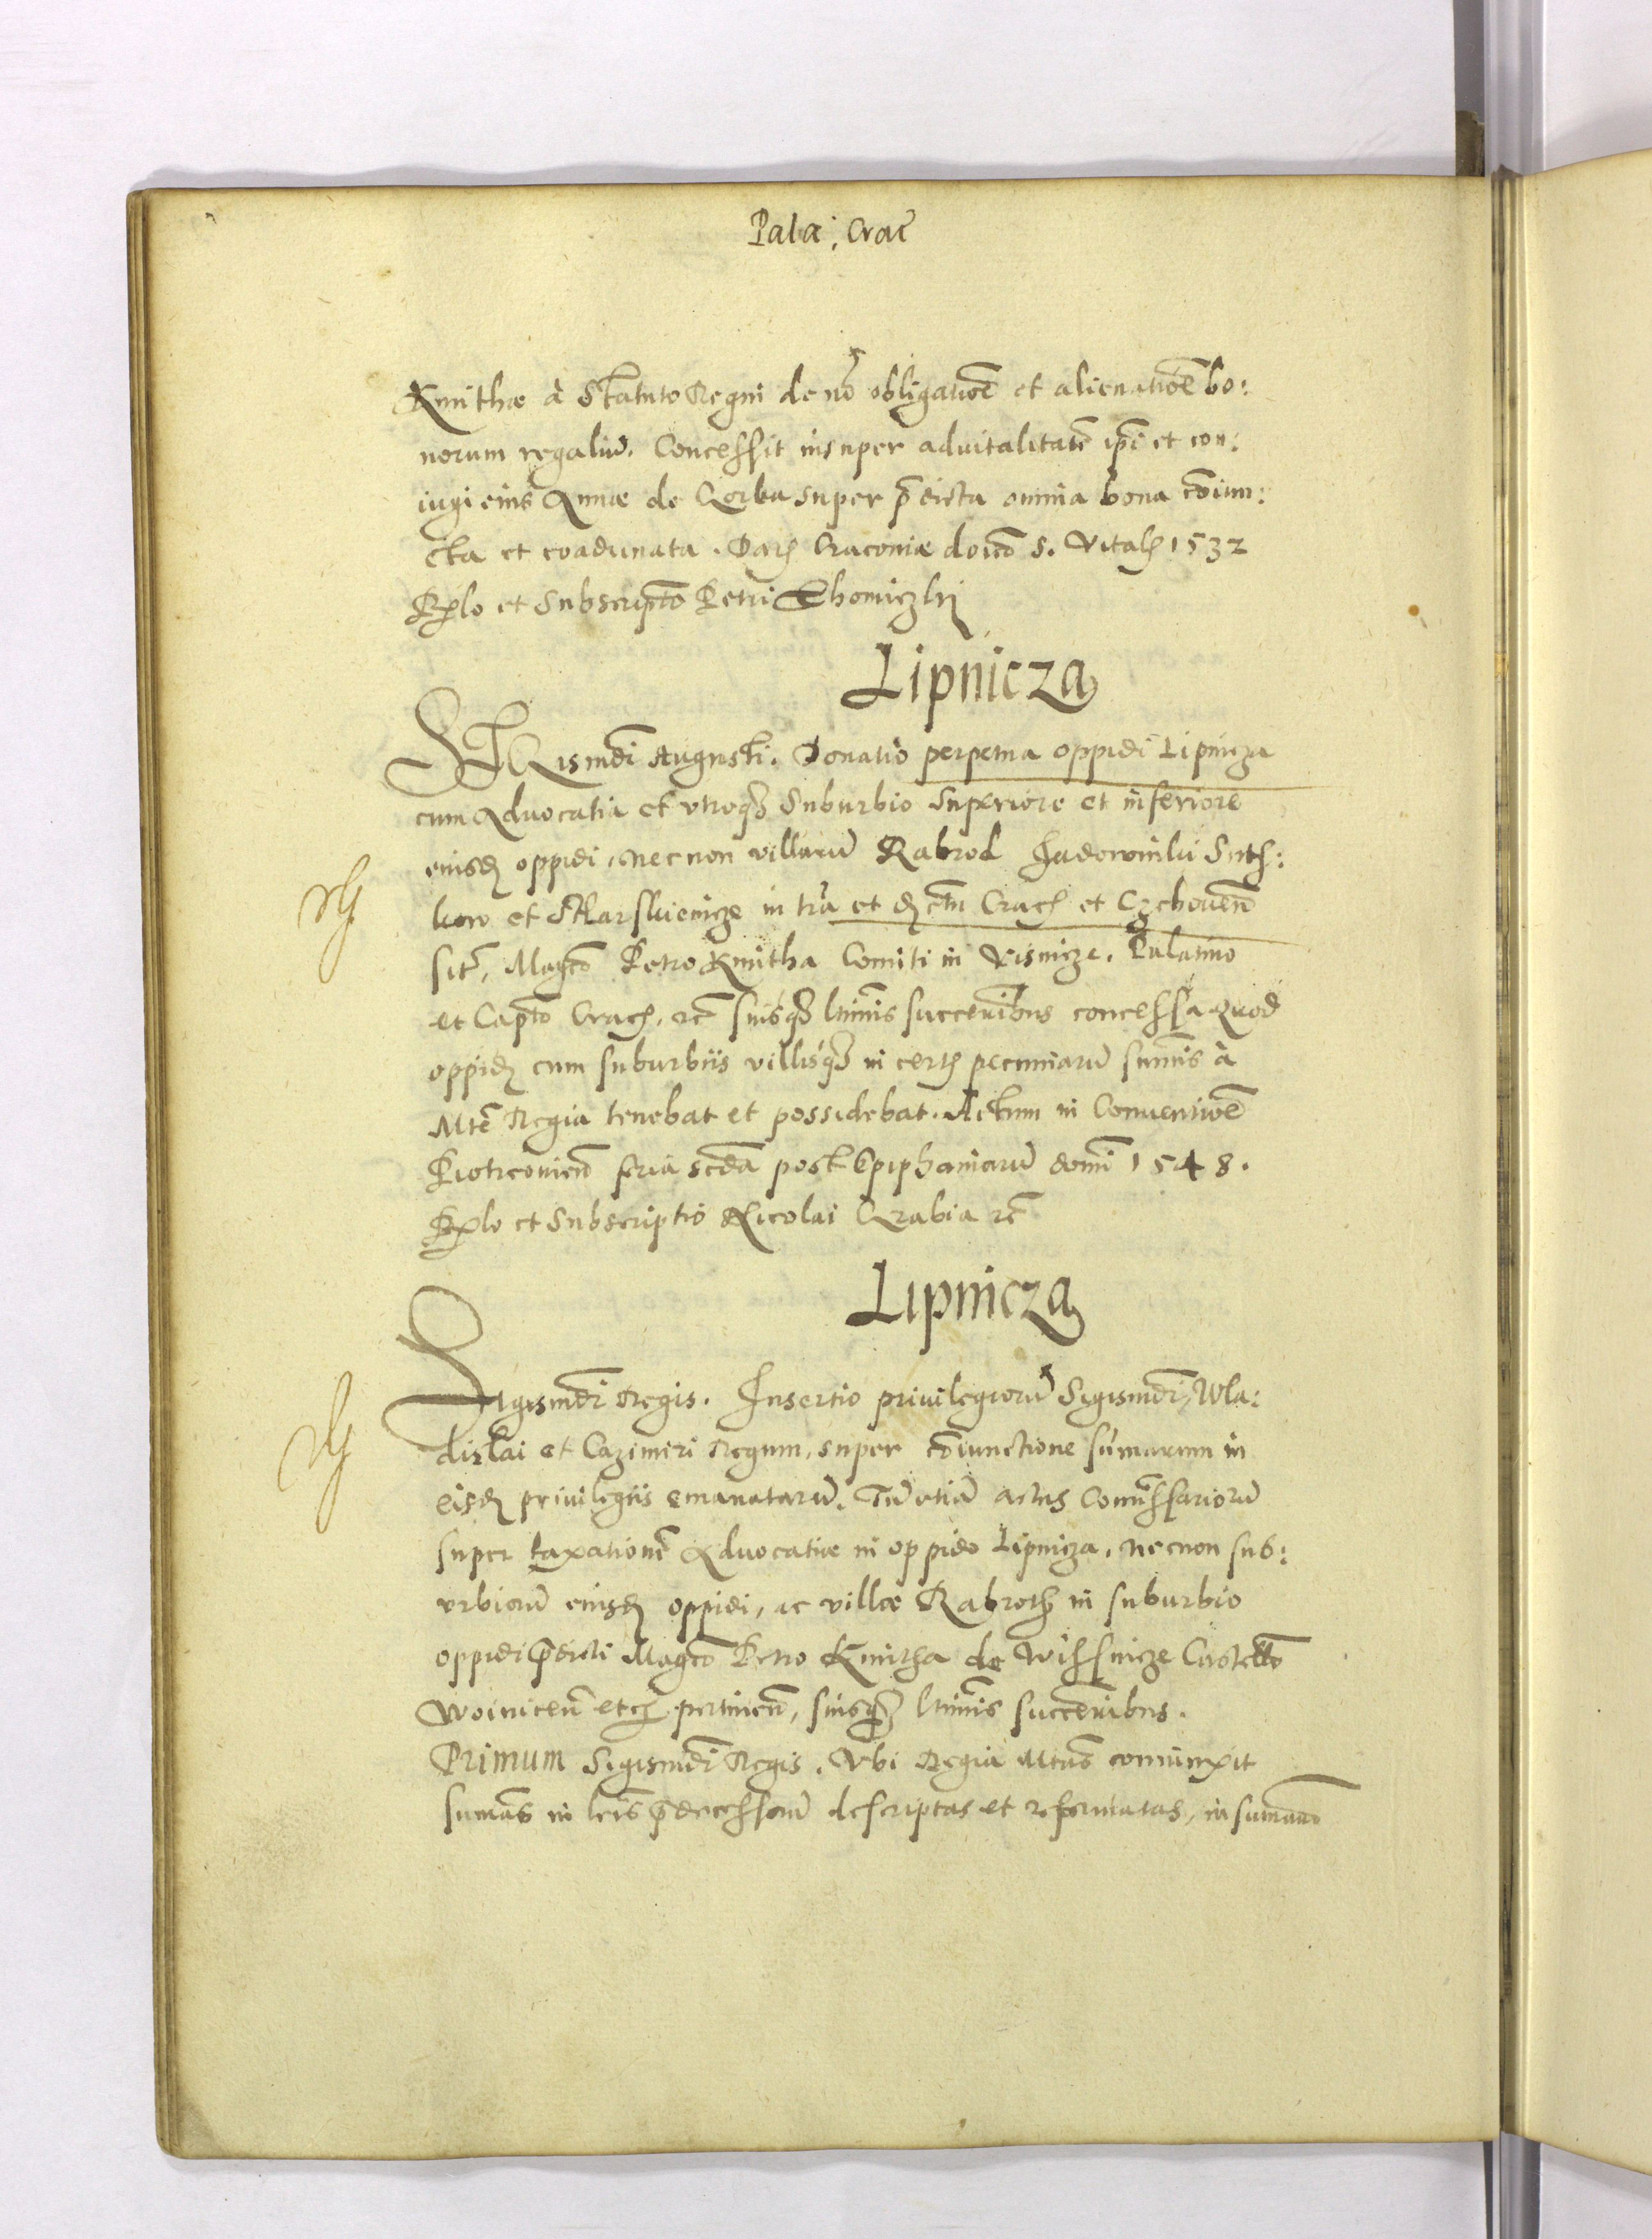 Pala: Crac̃
Kmithæ à Statuto Regni de nõ obligatiõe et alienatiõe bo:
norum regaliũ. Concessit insuper aduitalitatẽ ip̃i et con:
iugi eius Annæ de Gorka super p̃dicta omnia bona cõiun:
cta et coadunata. Dat̃ Cracouiæ dñico S. Vital̃ 1532
Sigllo et Subscript̃o Petri Thomiczki
Lipnicza
SIGismdi Augusti. Donatio perpetua oppidi Lipnicza
cum Aduocatia et vtroq̃ Suburbio Superiore et inferiore
eiusd̃ oppidi, nec non villarũ Rabrod
kow et in tr̃a et d̃ctu Crac̃ et Czchouen̄
sit̃, Magc̃o Petro Kmitha Comiti in Visnicze. Palatino
et Capt̃o Crac̃, etc̃ suisq̃ l̃timis succes̃ribus concessa Quod
oppid̃ cum suburbiis villisq̃ in cert̃ pecuniarũ sum̃is à
Mtẽ Regia tenebat et possidebat. Actum in Conuentiõe
Piotrcouien̄ feria scd̃a post Epiphaniarũ domi 1548.
Sigllo et Subscriptio Nicolai Grabia etc̃
Lipnicza
Sigismdi Regis. Insertio priuilegiorũ Sigismdi, Wla:
dislai et Cazimiri Regum, super cõiunctione sum̃arum in
eisd̃ priuilegiis emanatarũ. Tũ etiã actus Comissariorũ
super taxationẽ Aduocatiæ in oppido Lipnicza, necnon sub:
vrbiorũ eiusd̃ oppidi, ac villæ Rabroth in suburbio
oppidi p̃dicti Magc̃o Petro Kmitha de Wissnicze Castellõ
Woinicen̄ etc̃ pertinen̄, suisq̃ l̃timis succes̃ribus.
Primum Sigismdi Regis. Vbi Regia Mtas coniunxit
sumas in l̃ris p̃decessorũ descriptas et reformatas, in sumam̃